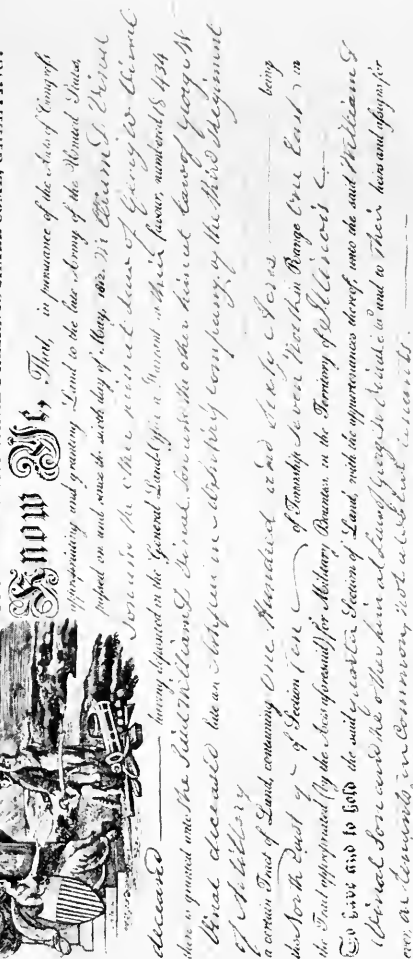 Know Ye, That, in pursuance of the Acts of Congress
appropriating and granting Land to the late Army of the United States,
passed on and since the sixth day of May, 1812. William D Vinal
Son and the other heirs at law of George W Vinal
deceased having deposited in the General Land-Office a Warrant in their favour, numbered 18 434
there is granted unto the said William D Vinal son and the other heirs at law of George W
Vinal deceased late an in company of the third Regiment
of Artillery
a certain Tract of Land, containing One Hundred and Sixty Acres being
the North East qr of Section Ten of Township Seven North in Range One East in
the Tract appropriated (by the Acts aforesaid) for Military Bounties, in the Territory of Illinois
To have and to hold the said quarter Section of Land, with the appurtenances thereof, unto the said William D
Vinal Son and the other heirs at Law of George W Vinal dec'd and to Their heirs and assigns for
ever, as tenants in common, not as joint tenants